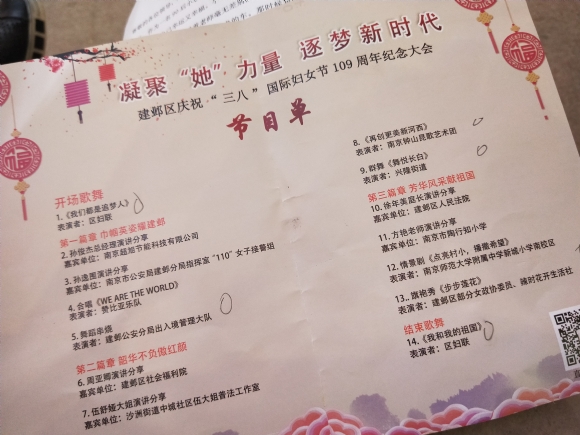 凝聚“她”力量 逐梦新时代
建邺区庆祝“三八”国际妇女节109周年纪念大会
节目单
开场歌舞
1.《我们都是追梦人》
表演者：区妇联
第一篇章 巾帼英姿耀建邺
2. 孙俊杰总经理演讲分享
嘉宾单位：南京超旭节能科技有限公司
3. 孙逸囡演讲分享
嘉宾单位：南京市公安局建邺分局指挥室“110”女子接警组
4. 合唱《WE ARE THE WORLD》
表演者：赞比亚乐队
5. 舞蹈串烧
表演者：建邺公安分局出入境管理大队
第二篇章 韶华不负傲红颜
6. 周亚卿演讲分享
嘉宾单位：建邺区社会福利院
7. 伍舒娅大姐演讲分享
嘉宾单位：沙洲街道中城社区伍大姐普法工作室
8.《再创更美新河西》
表演者：南京钟山昆歌艺术团
9. 群舞《舞悦长白》
表演者：兴隆街道
第三篇章 芳华风采献祖国
10. 徐年美庭长演讲分享
嘉宾单位：建邺区人民法院
11. 方艳老师演讲分享
嘉宾单位：南京市陶行知小学
12. 情景剧《点亮村小，播撒希望》
表演者：南京师范大学附属中学新城小学南校区
13.. 旗袍秀《步步莲花》
表演者：建邺区部分女政协委员、辣时花开生活社
结束歌舞
14.《我和我的祖国》
表演者：区妇联